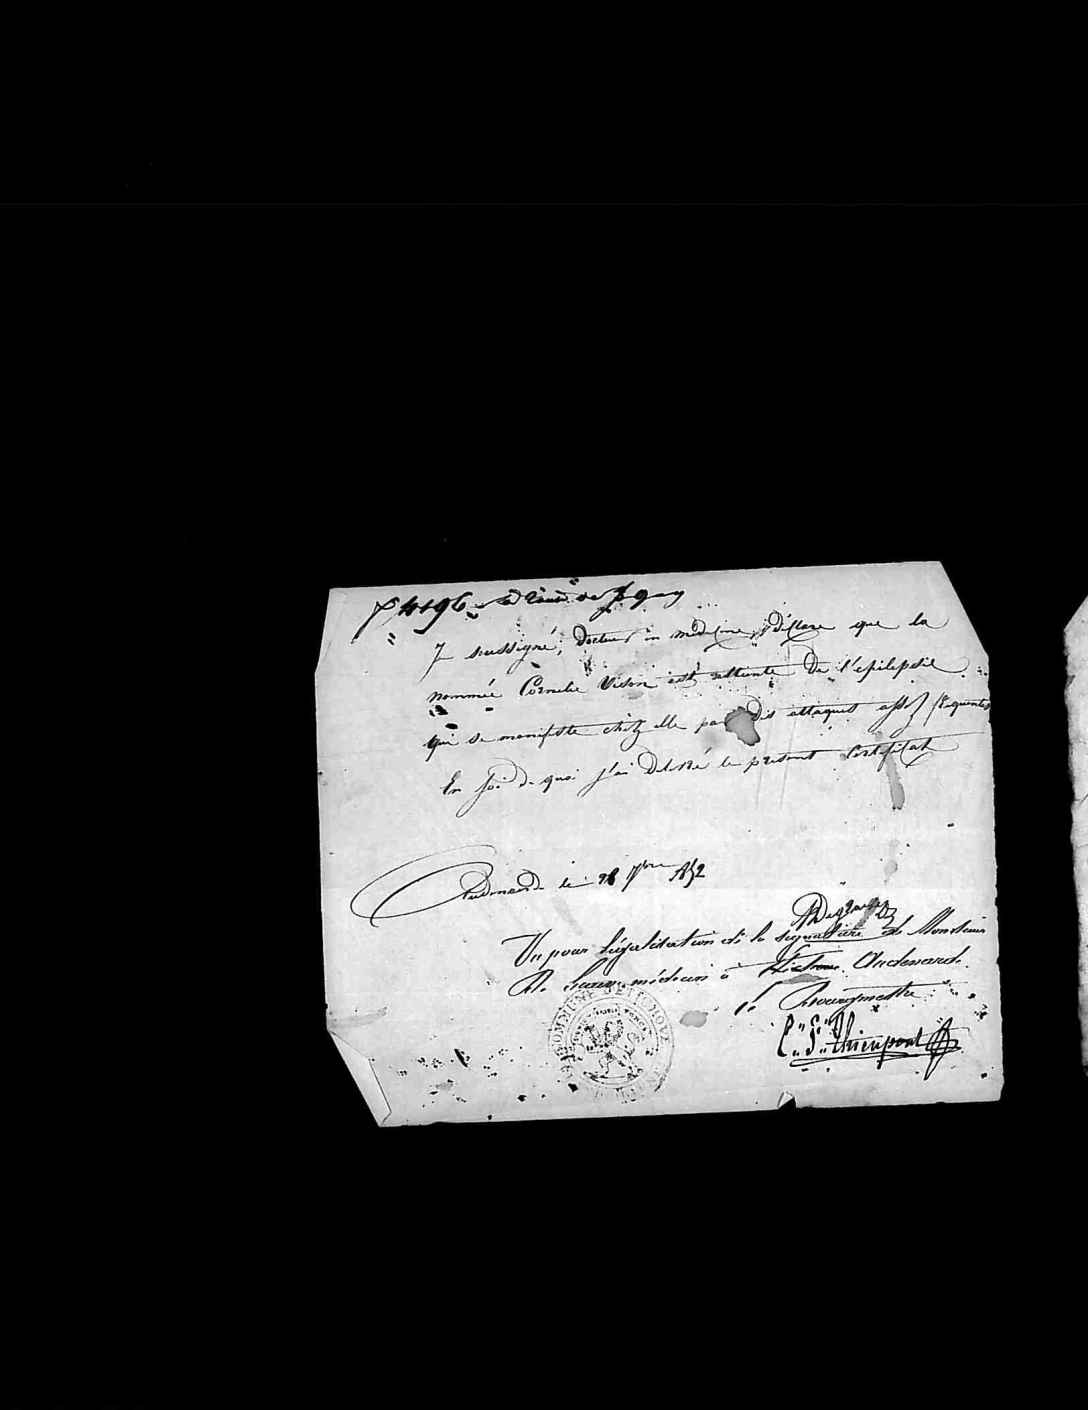 4496
J soussigné, docteur en médecine, déclare que la
nommée Cornelie Vison est atteinte de l'epilepsie
qui se manifeste chez elle par des attaques assez fréquentes
En foi de quoi j'ai délivré le présent certificat
Audenarde le 28 7bre 1852
Vu pour légalisation de la signature de Monsieur
médecin à Audenarde.
le Bourgmestre
C. L. Thienpont
COMMUNE D'ETICHOVE